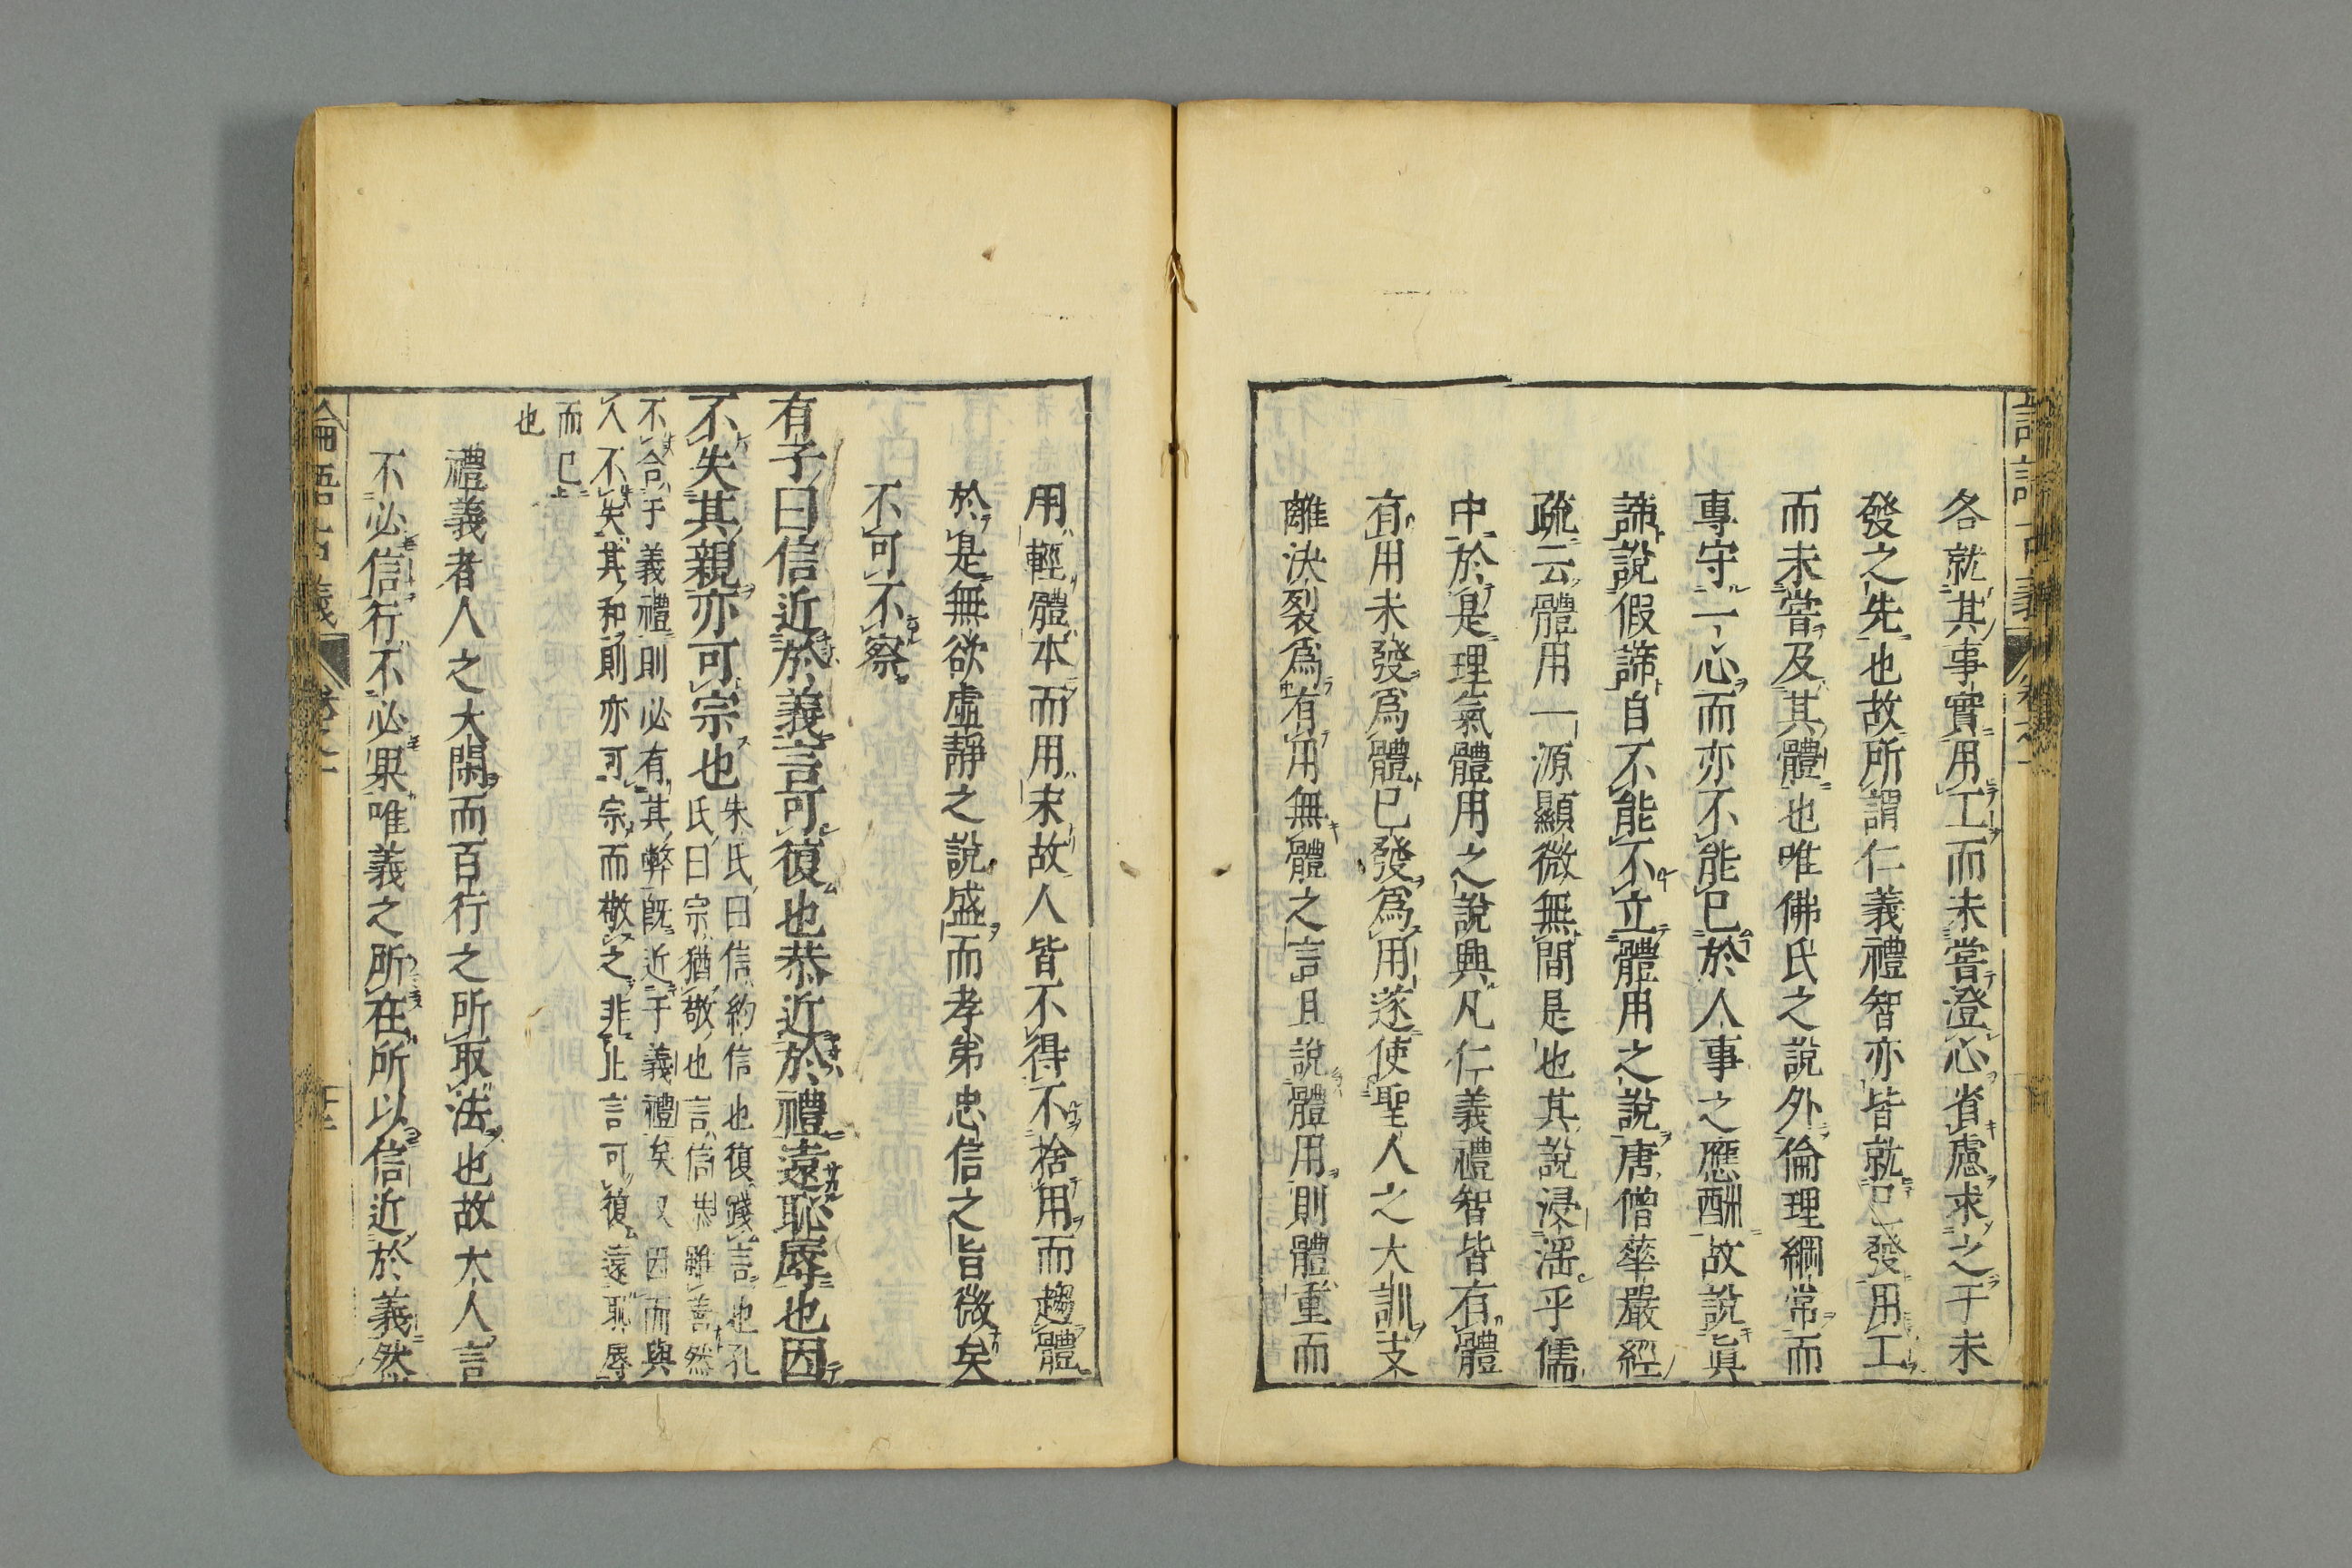 各就其事實用工而未嘗澄心省慮求之于未
發之先也故所謂仁義禮智亦皆就已發用工
而未嘗及其體也唯佛氏之說外倫理綱常而
專守一心而亦不能已於人事之應酬故說眞
諦說假諦自不能不立體用之說唐僧華嚴經
疏云體用一源顯微無間是也其說浸淫乎儒
中於是理氣體用之說興凡仁義禮智皆有體
有用未發爲體已發爲用遂使聖人之大訓支
離決裂爲有用無體之言且說體用則體重而
用輕體本而用末故人皆不得不捨用而趨體
於是無欲虛靜之說盛而孝弟忠信之旨微矣
不可不察
有子曰信近於義言可復也恭近於禮遠恥辱也因
不失其親亦可宗也
朱氏曰信約信也復踐言也孔
氏曰宗猶敬也言信恭雖善然
不合于義禮則必有其弊既近于義禮矣又因而與
人不失其和則亦可宗而敬之非止言可復遠恥辱
而已
也
禮義者人之大閑而百行之所取法也故大人言
不必信行不必果唯義之所在所以信近於義然
論語古義
卷之一